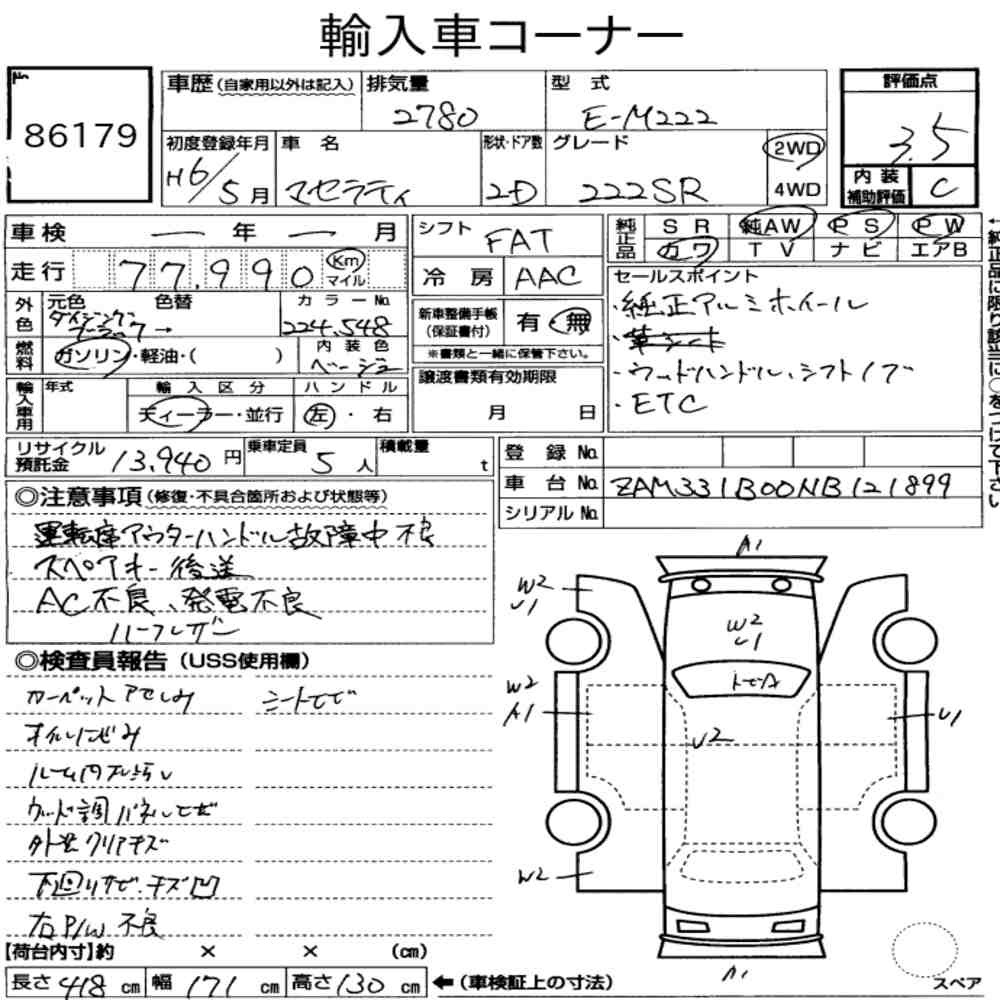 輸入車コーナー
No.
86179
車歴 (自家用以外は記入)
排気量
2780
型 式
E-M222
評価点
3.5
初度登録年月
H6/5月
車 名
マセラティ
形状・ドア数
2D
グレード
222SR
2WD
4WD
内装補助評価
C
車検 ― 年 ― 月
走行 77,990 Km マイル
シフト
FAT
冷 房 AAC
純正品
SR 純AW PS PW
カワ TV ナビ エアB
外色
元色
色替
→
カラーNo.
224.548
新車整備手帳
(保証書付)
有 無
※書類と一緒に保管下さい。
セールスポイント
・純正アルミホイール
・革シート
・ウッドハンドル、シフトノブ
・ETC
燃料
ガソリン・軽油・( )
内装色
ベージュ
輸入車用
年式
輸入区分
ディーラー・並行
ハンドル
左・右
譲渡書類有効期限
月 日
リサイクル預託金 13,940 円
乗車定員 5 人
積載量 t
登録No.
車台No. ZAM331B00NB121899
シリアルNo.
←純正品に限り該当に○をつけて下さい
◎注意事項(修復・不具合箇所および状態等)
運転席アウターハンドル故障中 不良
スペアキー後送
AC不良、発電不良
ハーフレザー
◎検査員報告(USS使用欄)
カーペットアセしみ
シートスレ
オイルにじみ
ルーム内プレ汚レ
ウッド調パネルヒビ
外装クリアキズ
下回りサビ、キズ凹
右P/W 不良
A1
W2
U1
W2
U1
トビA
W2
A1
U2
U1
W2
A1
スペア
【荷台内寸】約 × × (cm)
長さ 418 cm 幅 171 cm 高さ 130 cm ←(車検証上の寸法)